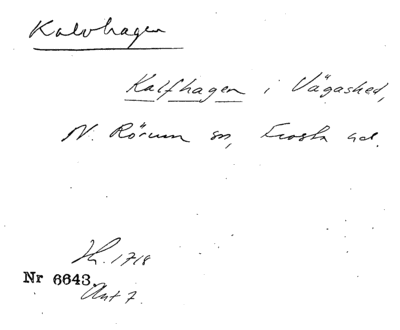 Kalvhagen
Kalfhagen i Vägashed,
N. Rörum sn, Frosta hd.
Jh. 1718
Nr 6643.
Akt 7.